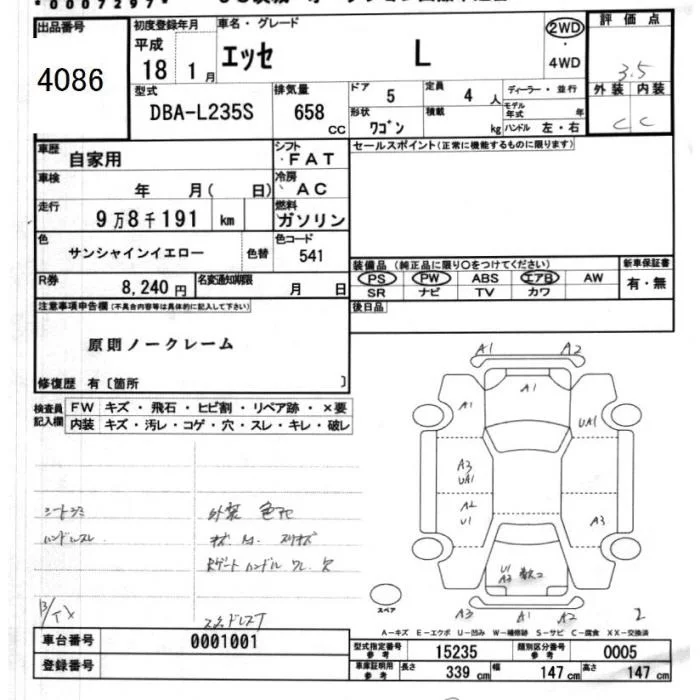 *0007297*
出品番号
4086
初度登録年月
平成
18 1月
車名・グレード
エッセ L
2WD
・
4WD
評価点
3.5
外装 内装
C C
型式
DBA-L235S
排気量
658
CC
ドア
5
定員
4 人
ディーラー・並行
モデル年式 年
形状
ワゴン
積載
kg
ハンドル 左・右
車歴
自家用
シフト
・FAT
セールスポイント(正常に機能するものに限ります)
車検
年 月( 日)
冷房
AC
走行
9万8千191 km
燃料
ガソリン
色
サンシャインイエロー
色替
色コード
541
装備品(純正品に限り○をつけてください)
PS PW ABS エアB AW
SR ナビ TV カワ
新車保証書
有・無
R券
8,240円
名変通知期限
月 日
後日品
注意事項申告欄(不具合内容等は具体的に記入して下さい)
原則ノークレーム
修復歴 有〔箇所 〕
検査員記入欄
FW キズ・飛石・ヒビ割・リペア跡・×要
内装 キズ・汚レ・コゲ・穴・スレ・キレ・破レ
シートシミ
ハンドルスレ
外装 色アセ
キズ
Rゲートハンドル ワレ 欠
A1 A2
A1
A1
UA1
A3
UA1
A2
U1
A3
U1
A3
A3 A1 A2
2
スペア
A-キズ E-エクボ U-凹み W-補修跡 S-サビ C-腐食 XX-交換済
車台番号
0001001
登録番号
型式指定番号
参考
15235
類別区分番号
参考
0005
車庫証明用
参考
長さ 339 cm
幅 147 cm
高さ 147 cm